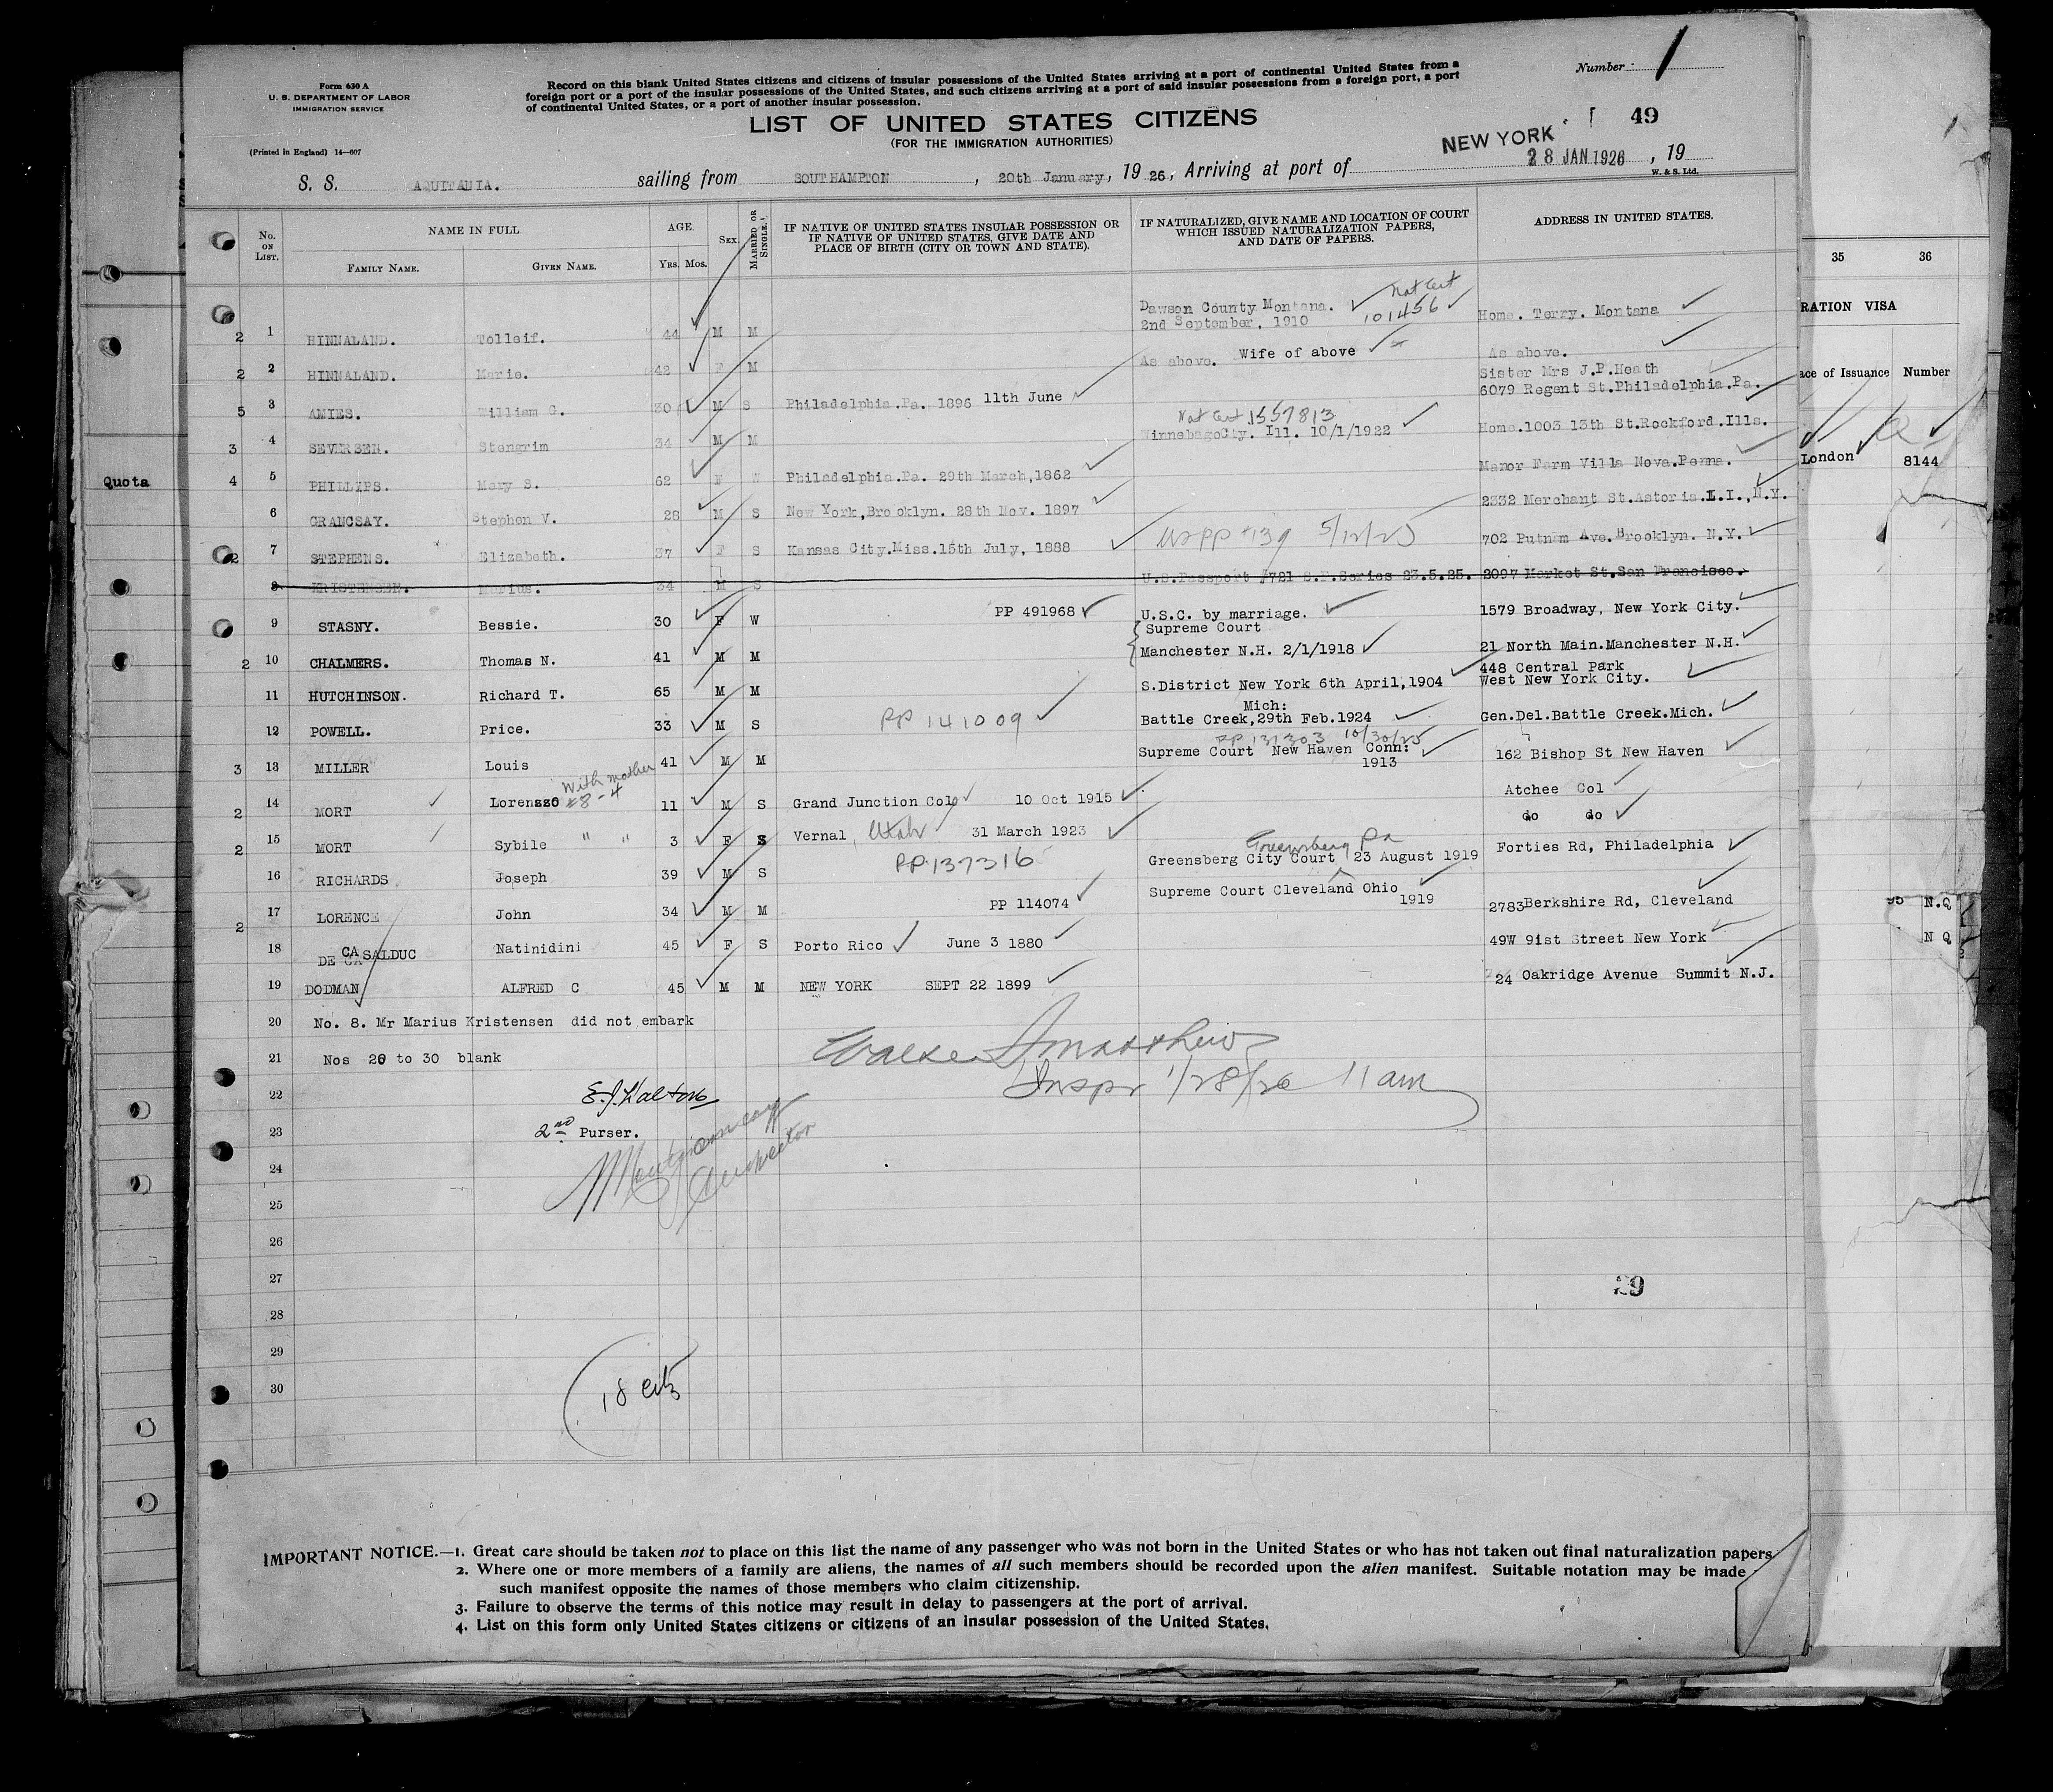 Form 630 A
U. S. DEPARTMENT OF LABOR
IMMIGRATION SERVICE
(Printed in England) 14—607
Record on this blank United States citizens and citizens of insular possessions of the United States arriving at a port of continental United States from a
foreign port or a port of the insular possessions of the United States, and such citizens arriving at a port of said insular possessions from a foreign port, a port
of continental United States, or a port of another insular possession.
Number: 1
LIST OF UNITED STATES CITIZENS
(FOR THE IMMIGRATION AUTHORITIES)
49
S. S. AQUITANIA. sailing from SOUTHAMPTON, 20th January, 1926, Arriving at port of NEW YORK 28 JAN 1926, 19
W. & S. Ltd.
No. ON LIST. NAME IN FULL FAMILY NAME. GIVEN NAME. AGE. YRS. MOS. SEX. MARRIED OR SINGLE. IF NATIVE OF UNITED STATES INSULAR POSSESSION OR IF NATIVE OF UNITED STATES, GIVE DATE AND PLACE OF BIRTH (CITY OR TOWN AND STATE). IF NATURALIZED, GIVE NAME AND LOCATION OF COURT WHICH ISSUED NATURALIZATION PAPERS, AND DATE OF PAPERS. ADDRESS IN UNITED STATES.
2 1 HINNALAND. Tolleif. 44 M M Dawson County Montana. 2nd September, 1910 Nat Cert 101456 Home. Terry. Montana
2 2 HINNALAND. Marie. 42 F M As above. Wife of above As above.
5 3 AMIES. William G. 30 M S Philadelphia.Pa. 1896 11th June Sister Mrs J.P.Heath 6079 Regent St.Philadelphia.Pa.
3 4 SEVERSEN. Stengrim 34 M M Nat Cert 1557813 WinnebagoCty. Ill. 10/1/1922 Home.1003 13th St.Rockford.Ills.
4 5 PHILLIPS. Mary S. 62 F W Philadelphia.Pa. 29th March,1862 Manor Farm Villa Nova.Penna.
6 GRANCSAY. Stephen V. 28 M S New York,Brooklyn. 28th Nov. 1897 2332 Merchant St.Astoria.L.I.,N.Y.
2 7 STEPHENS. Elizabeth. 37 F S Kansas City.Miss.15th July, 1888 US PP #139 5/12/25 702 Putnam Ave.Brooklyn. N.Y.
8 KRISTENSEN. Marius. 34 M S U.S.Passport #721 S.F.Series 23.5.25. 2097 Market St.San Francisco.
9 STASNY. Bessie. 30 F W PP 491968 U.S.C. by marriage. 1579 Broadway, New York City.
2 10 CHALMERS. Thomas N. 41 M M Supreme Court Manchester N.H. 2/1/1918 21 North Main.Manchester N.H.
11 HUTCHINSON. Richard T. 65 M M S.District New York 6th April,1904 448 Central Park West New York City.
12 POWELL. Price. 33 M S PP 141009 Mich: Battle Creek,29th Feb.1924 Gen.Del.Battle Creek.Mich.
3 13 MILLER Louis 41 M M PP 131303 10/30/25 Supreme Court New Haven Conn: 1913 162 Bishop St New Haven
2 14 MORT Lorenzo With mother #8-4 11 M S Grand Junction Colo 10 Oct 1915 Atchee Col
2 15 MORT Sybile " " 3 F S Vernal, Utah 31 March 1923 do do
16 RICHARDS Joseph 39 M S PP.137316 Greensberg Pa Greensberg City Court 23 August 1919 Forties Rd, Philadelphia
2 17 LORENCE John 34 M M PP 114074 Supreme Court Cleveland Ohio 1919 2783 Berkshire Rd, Cleveland
18 DE CASALDUC Natinidini 45 F S Porto Rico June 3 1880 49W 91st Street New York
19 DODMAN ALFRED C 45 M M NEW YORK SEPT 22 1899 24 Oakridge Avenue Summit N.J.
20 No. 8. Mr Marius Kristensen did not embark
21 Nos 20 to 30 blank
Inspr 1/28/26 11 am
22
23 2nd Purser.
Inspector
24
25
26
27
29
28
29
30
18 citz
IMPORTANT NOTICE.—1. Great care should be taken not to place on this list the name of any passenger who was not born in the United States or who has not taken out final naturalization papers
2. Where one or more members of a family are aliens, the names of all such members should be recorded upon the alien manifest. Suitable notation may be made
such manifest opposite the names of those members who claim citizenship.
3. Failure to observe the terms of this notice may result in delay to passengers at the port of arrival.
4. List on this form only United States citizens or citizens of an insular possession of the United States.
Quota
35 36
RATION VISA
ace of Issuance Number
London 8144
N.Q
N Q